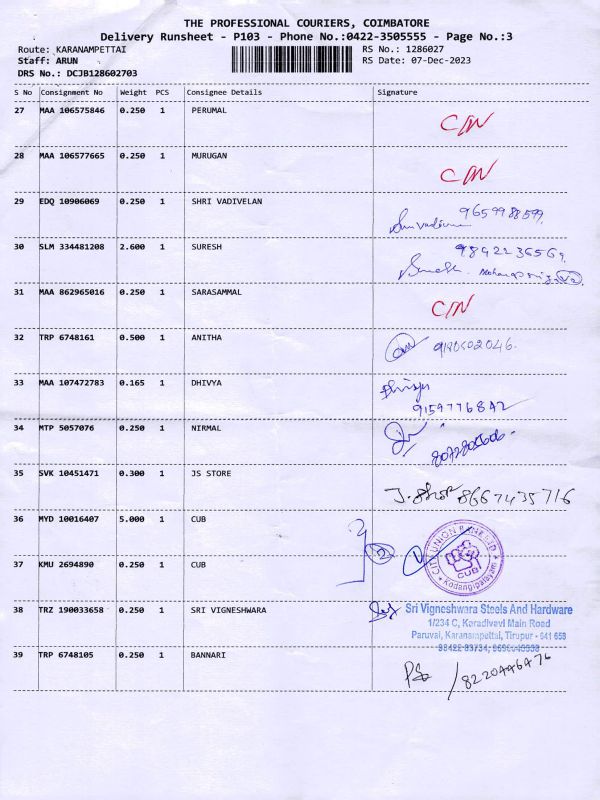 THE PROFESSIONAL COURIERS, COIMBATORE
Delivery Runsheet - P103 - Phone No.:0422-3505555 - Page No.:3
Route: KARANAMPETTAI RS No.: 1286027
Staff: ARUN RS Date: 07-Dec-2023
DRS No.: DCJB128602703
S No Consignment No Weight PCS Consignee Details Signature
27 MAA 106575846 0.250 1 PERUMAL C/N
28 MAA 106577665 0.250 1 MURUGAN C/N
29 EDQ 10906069 0.250 1 SHRI VADIVELAN
9659988599
30 SLM 334481208 2.600 1 SURESH
9842236569
Suresh
31 MAA 862965016 0.250 1 SARASAMMAL C/N
32 TRP 6748161 0.500 1 ANITHA
33 MAA 107472783 0.165 1 DHIVYA
9159776842
34 MTP 5057076 0.250 1 NIRMAL
35 SVK 10451471 0.300 1 JS STORE
8667435716
36 MYD 10016407 5.000 1 CUB
CITY UNION BANK LTD
CUB
Kodangipalayam
37 KMU 2694890 0.250 1 CUB
38 TRZ 190033658 0.250 1 SRI VIGNESHWARA
Sri Vigneshwara Steels And Hardware
1/234 C, Karadivavi Main Road
Paruvai, Karanampettai, Tirupur - 641 658
39 TRP 6748105 0.250 1 BANNARI
8220446476